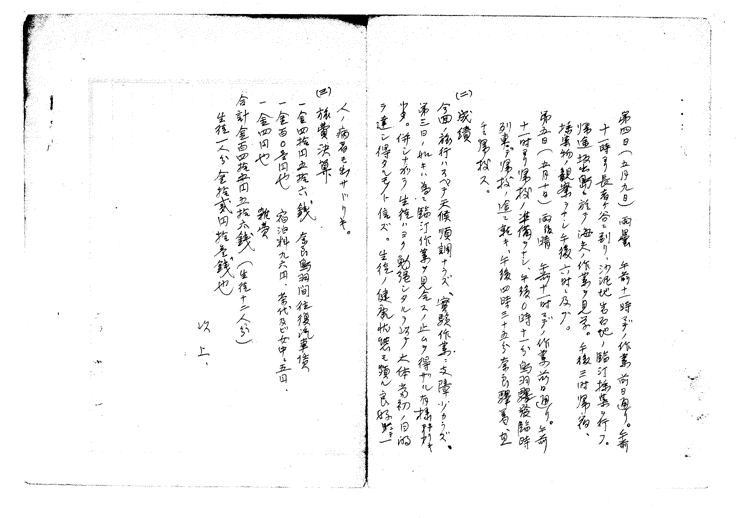 第四日（五月九日）雨曇　午前十一時マデノ作業前日通リ。午前
十一時ヨリ長者ヶ谷ニ到リ、沙泥地岩石地ノ臨汀採集ヲ行フ。
帰途坂手島ニ於テ海夫ノ作業ヲ見学。午後三時帰宿、
採集物ノ観察ヲナシ午後六時ニ及ブ。
第五日（五月十日）雨後晴　午前十時マデノ作業前日通リ。午前
十一時ヨリ帰校ノ準備ヲナシ、午後〇時十一分鳥羽駅発臨時
列車デ帰校ノ途ニ就キ、午後四時三十五分奈良駅着、直
ニ帰校ス。
(二) 成績
今回ノ旅行ハスベテ天候順調ナラズ、実験作業ニ支障少カラズ。
第三日ノ如キハ為ニ臨汀作業ヲ見合スノ止ムヲ得ザル有様
併シナガラ生徒ハヨク勉強シタルヲ以テ大体当初ノ目的
ヲ達シ得タルモノト信ズ。生徒ノ健康状態モ頗ル良好ニシテ一
人ノ病者モ出サザリキ。
(三) 旅費決算
一金四拾円五拾六銭　奈良鳥羽間往復汽車賃
一金百〇壱円也　宿泊料九六円、茶代及ビ女中ニ五円、
一金四円也　雑費
合計金百四拾五円五拾六銭（生徒十二人分）
生徒一人分金拾弐円拾参銭也
以上、